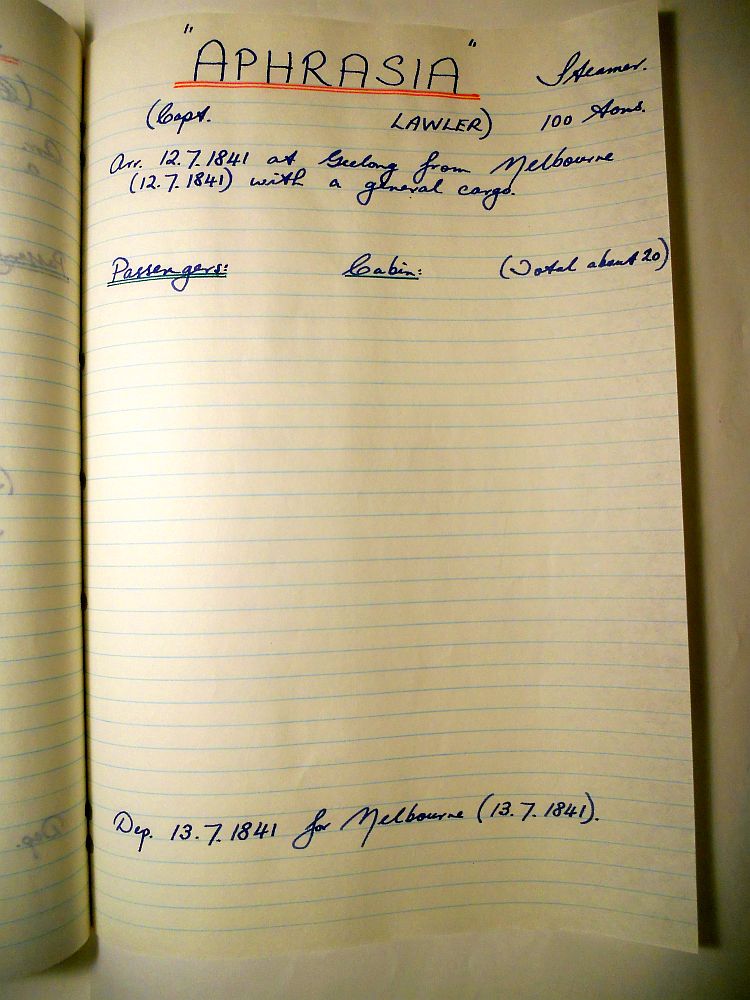 "APHRASIA" Steamer.
(Capt. LAWLER) 100 Tons.
Arr. 12.7.1841 at Geelong from Melbourne
(12.7.1841) with a general cargo.
Passengers: Cabin: (Total about 20)
Dep. 13.7.1841 for Melbourne (13.7.1841).